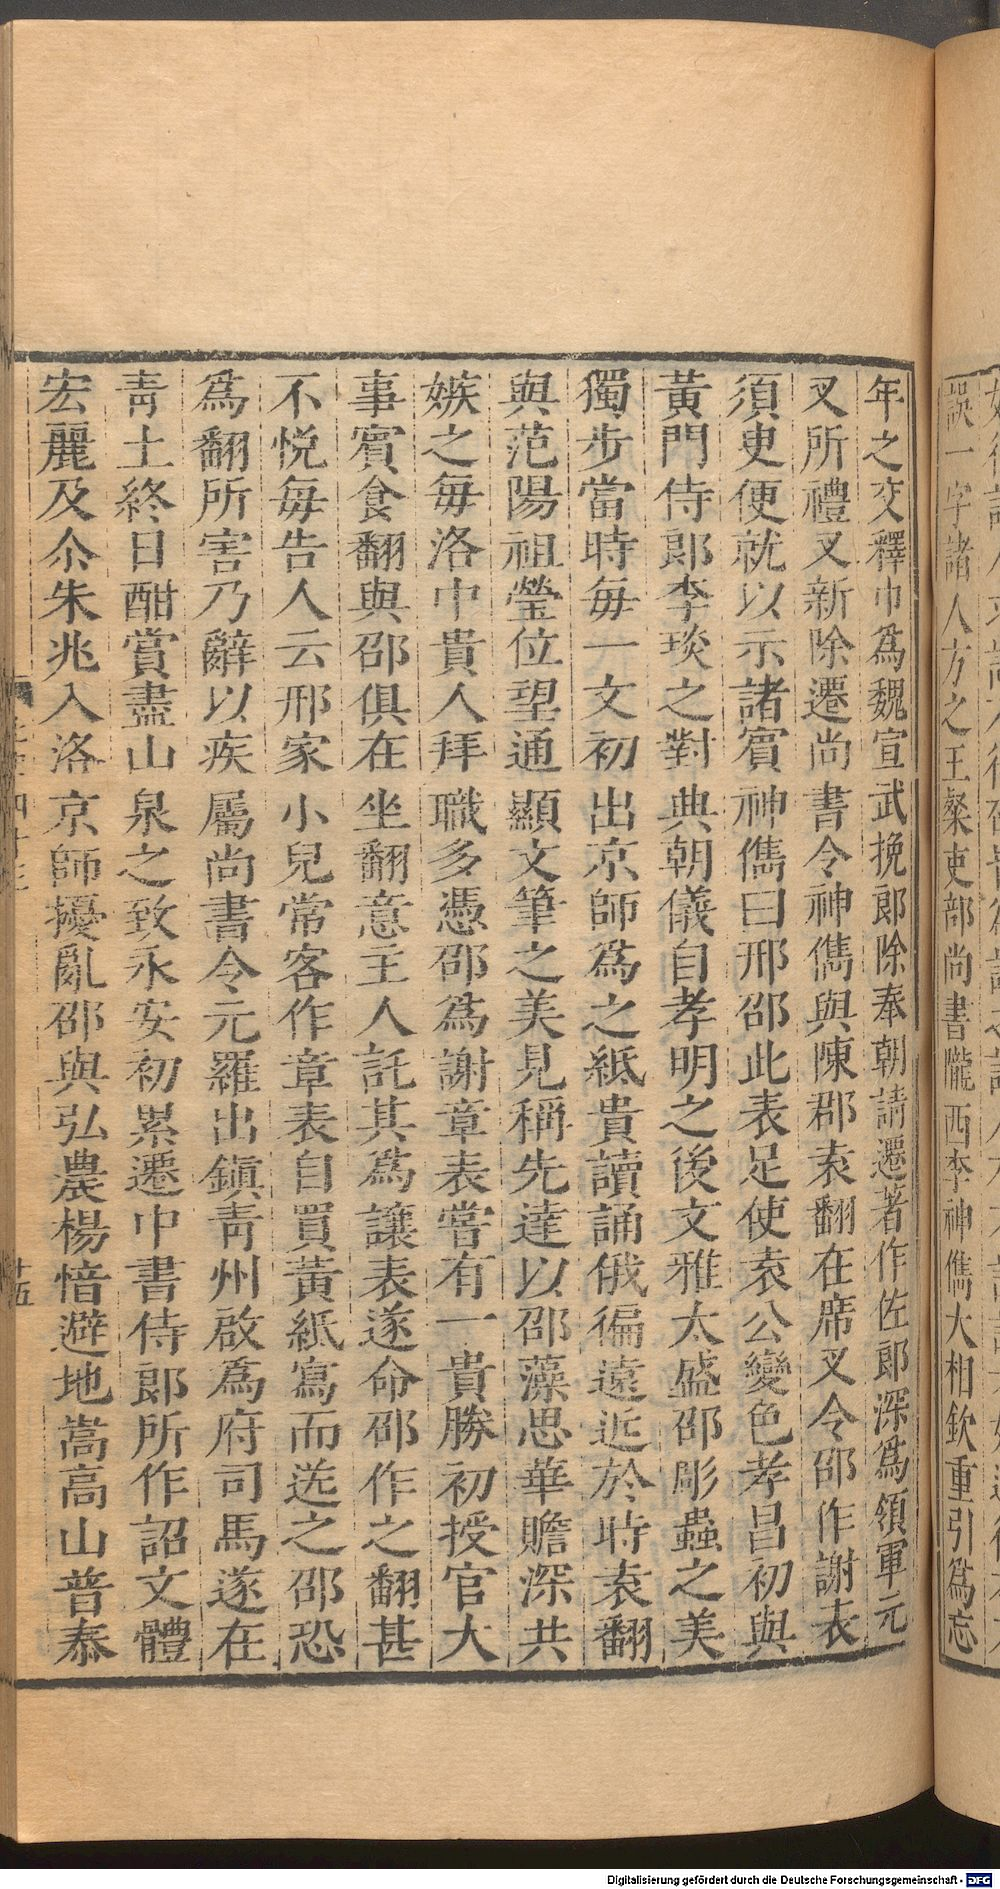 誤一字諸人方之王粲吏部尚書隴西李神儁大相欽重引爲忘
年之交釋巾爲魏宣武挽郎除奉朝請遷著作佐郎深爲領軍元
叉所禮叉新除遷尚書令神儁與陳郡袁翻在席叉令邵作謝表
須吏便就以示諸賓神儁曰邢邵此表足使袁公變色孝昌初與
黃門侍郎李琰之對典朝儀自孝明之後文雅太盛邵彫蟲之美
獨步當時每一文初出京師爲之紙貴讀誦俄徧遠近於時袁翻
與范陽祖瑩位望通顯文筆之美見稱先達以邵藻思華贍深共
嫉之每洛中貴人拜職多憑邵爲謝章表嘗有一貴勝初授官大
事賓食翻與邵俱在坐翻意主人託其爲讓表遂命邵作之翻甚
不悅每告人云邢家小兒常客作章表自買黃紙寫而送之邵恐
爲翻所害乃辭以疾屬尚書令元羅出鎭青州啟爲府司馬遂在
青土終日酣賞盡山泉之致永安初累遷中書侍郎所作詔文體
宏麗及尒朱兆入洛京師擾亂邵與弘農楊愔避地嵩高山普泰
十五
Digitalisierung gefördert durch die Deutsche Forschungsgemeinschaft - DFG